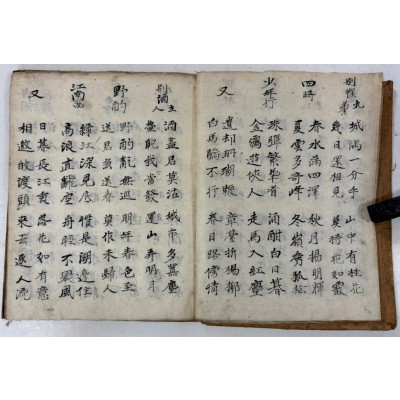 別崔九弟
城隅一分手 山中有桂花
幾日還相見 莫待花如霰
四時
春水滿四澤 秋月揚明輝
夏雲多奇峰 冬嶺秀孤松
少年行
珠彈繁華者 酒酣白日暮
金羈遊俠人 走馬入紅塵
又
遺却珊瑚鞭 章臺折楊柳
白馬驕不行 春日路傍情
別酒主人
酒盡君莫沽 城市多囂塵
我當發 還山弄明月
野酌
野酌亂無巡 明年春色至
送君兼送春 莫作未歸人
江南曲
綠江深見底 慣是湖邊住
高浪直翻空 舟輕不畏風
又
日暮長江裏 落花如有意
相邀歸渡頭 來去逐人流